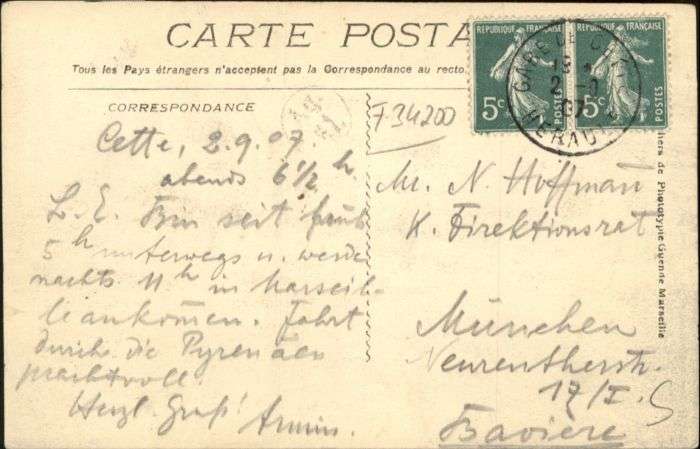 CARTE POSTA
Tous les Pays étrangers n'acceptent pas la Correspondance au recto.
CORRESPONDANCE
RÉPUBLIQUE FRANÇAISE
5c POSTES
RÉPUBLIQUE FRANÇAISE
5c POSTES
GARE DE CETTE
2 - 9
07
HERAULT
F.34200
Cette, 2.9.07.
abends 6 1/2 h
L. E. Bin seit früh
5 h unterwegs u. werde
nachts 11 h in Marseil-
le ankommen. Fahrt
durch die Pyrenäen
prachtvoll.
Herzl. Gruß! Armin.
M. N. Hoffmann
K. Direktionsrat
München
Neureutherstr.
17/I.
Baviere
iers de Phototypie Guende Marseille